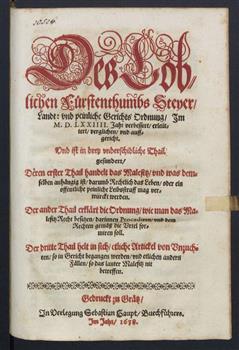 Des Löb-
lichen Fürstenthumbs Steyer/
Landt: vnd peinliche Gerichts Ordnung/ Im
M. D. LXXIIII. Jahr verbessert/ erleüt-
tert/ verglichen/ vnd auff-
gericht,
Vnd ist in drey vnderschidliche Thail
gesündert/
Deren erster Thail handelt das Malefitz/ vnd was dem-
selben anhängig ist/ darumb Rechtlich das Leben/ oder ein
offentliche peinliche Leibsstraff mag ver-
würckt werden.
Der ander Thail erklärt die Ordnung/ wie man das Ma-
lefitz Recht besitzen/ darinnen Procedirn/ vnd dem
Rechten gemäß die Vrtel for-
miren soll.
Der dritte Thail helt in sich/ etliche Artickel von Vnzuch-
ten/ so in Gericht begangen werden/ vnd etlichen andern
Fällen/ so das lauter Malefitz nit
betreffen.
Gedruckt zu Grätz/
In Verlegung Sebastian Haupt/ Buechführers.
Im Jahr/ 1638.